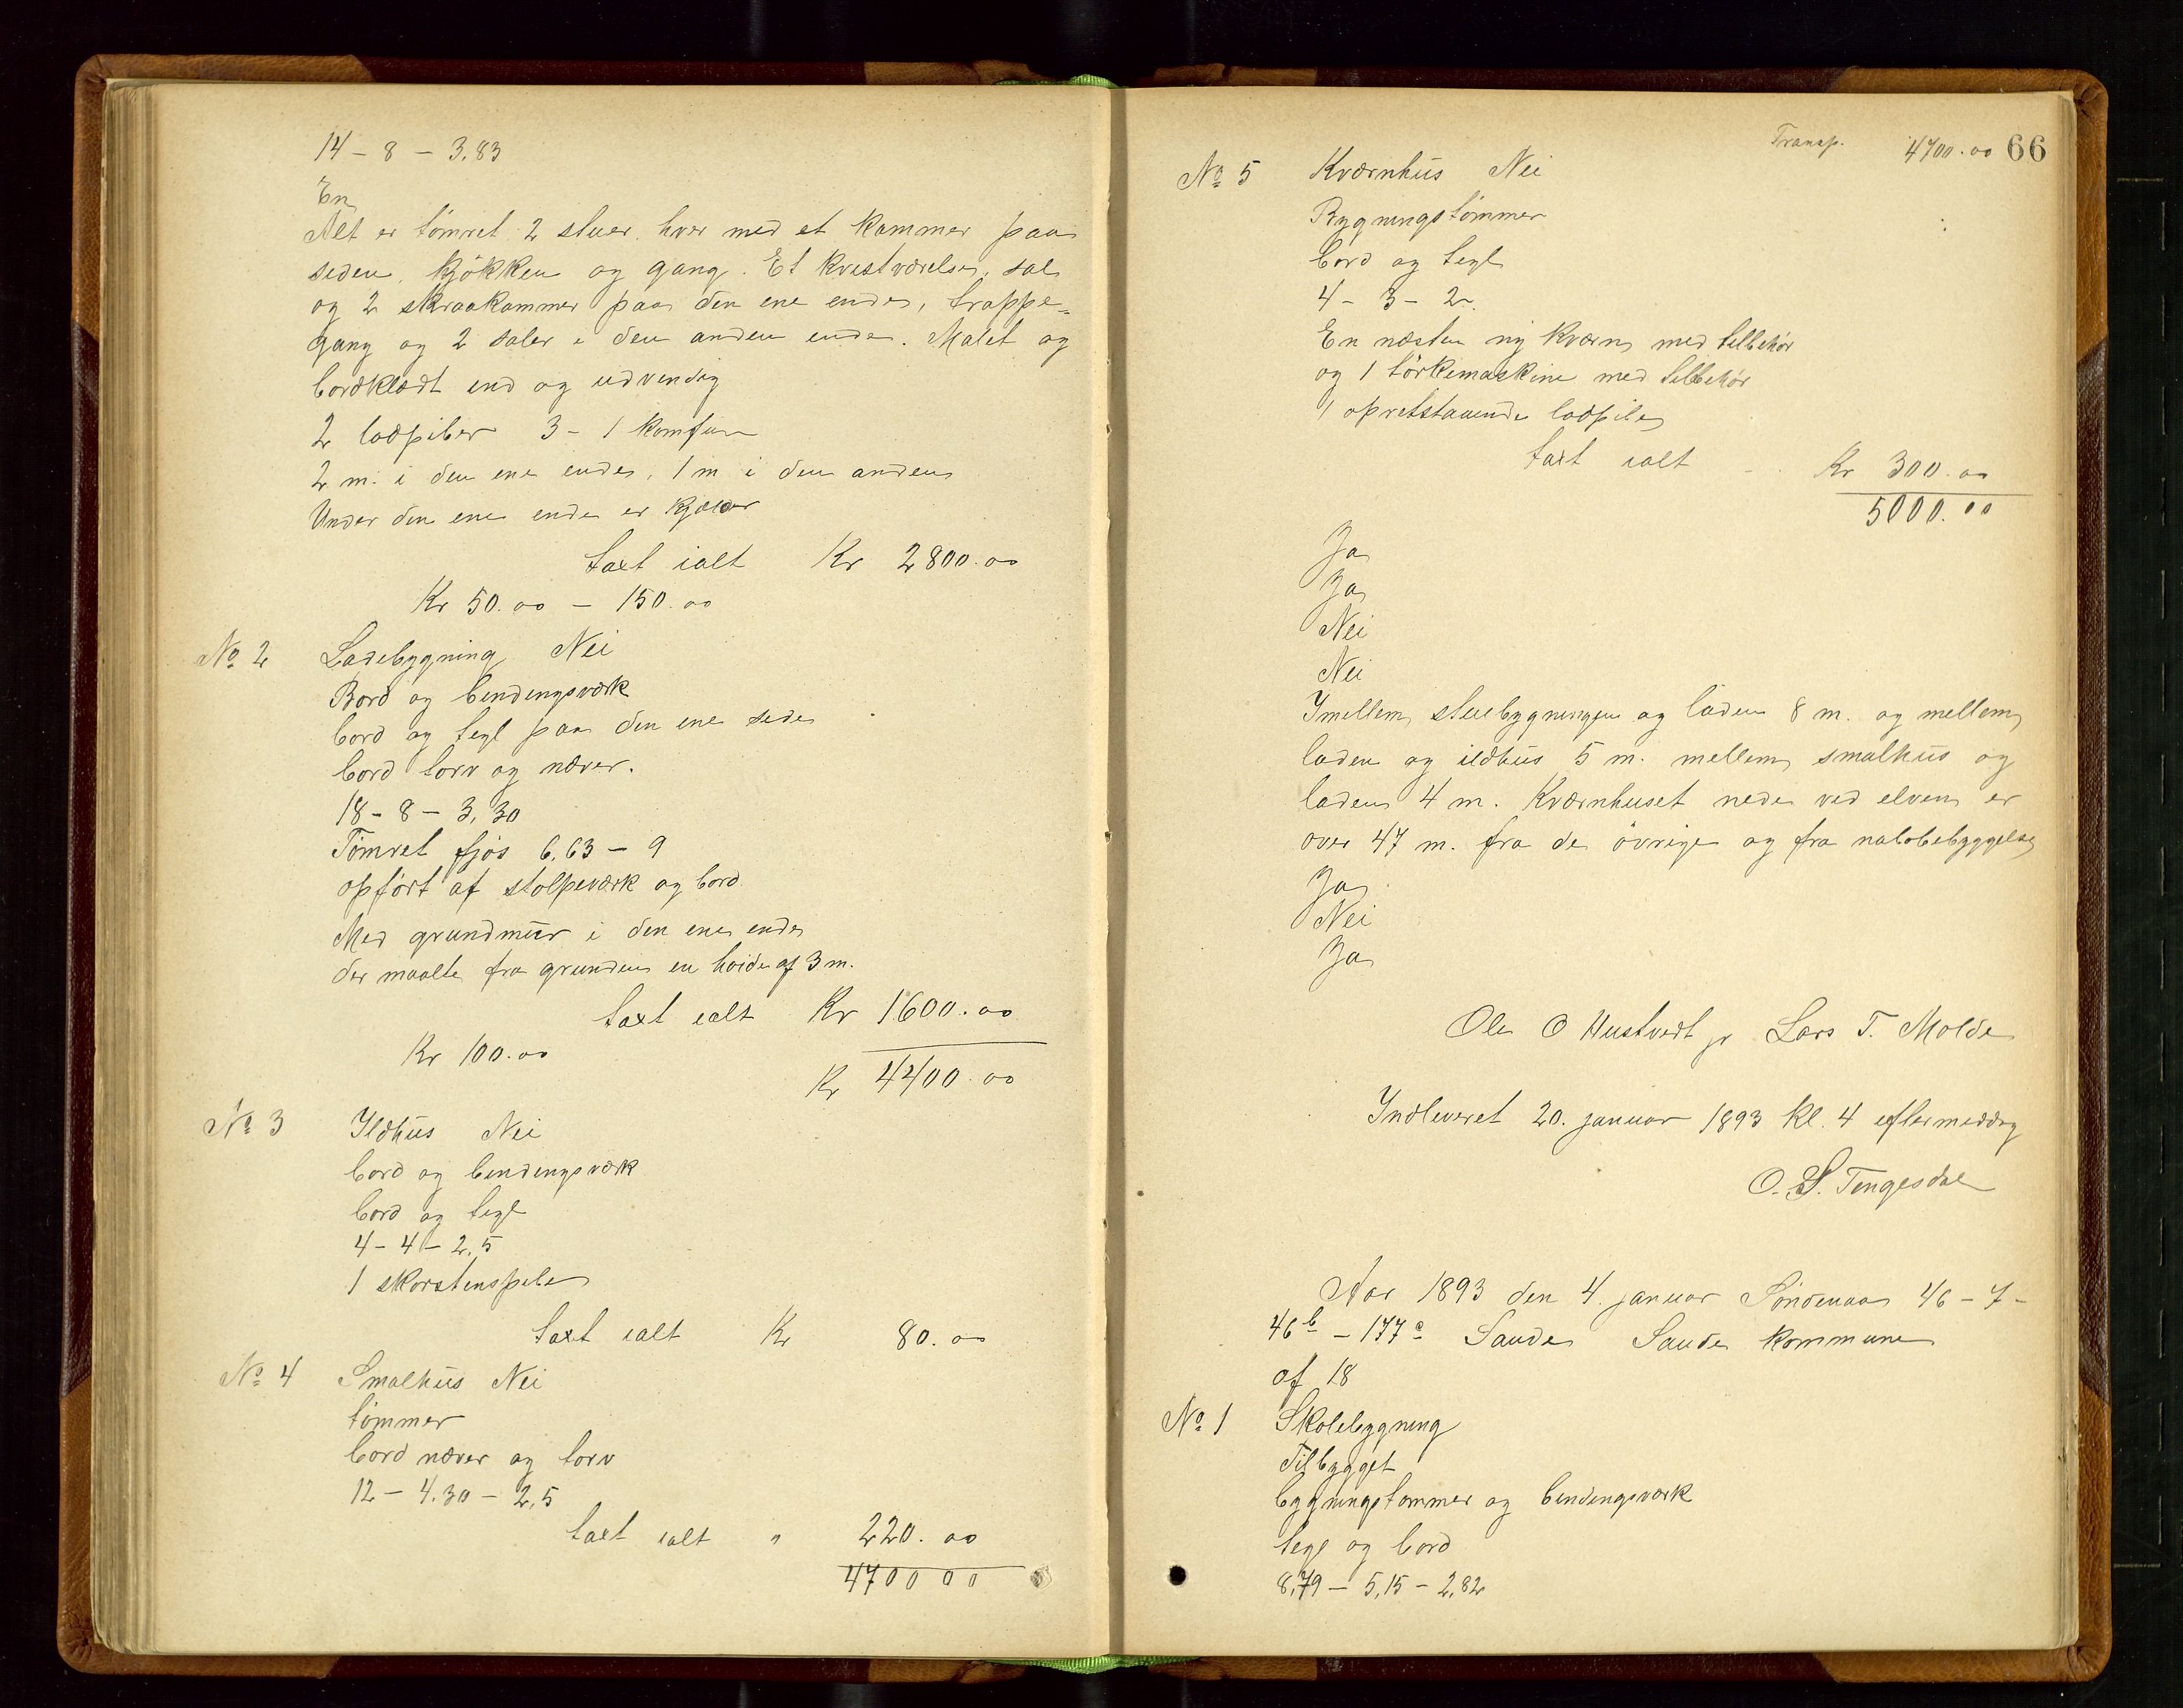 14 - 8 - 3,83
En
Alt er tömret 2 stuer hver med et kammer paa
siden, kjökken og gang. Et kvistværelse, sal
og 2 skraakammer paa den ene ende, trappe-
gang og 2 saler i den anden ende. Malet og
bordklædt ind og udvendig
2 lodpiber 3 - 1 komfur
2 m. i den ene ende, 1 m i den anden
Under den ene ende er kjælder
taxt ialt Kr 2800.00
Kr 50.00 - 150.00
No 2 Ladebygning Nei
Bord og bindingsværk
bord og tegl paa den ene side
bord torv og næver.
18 - 8 - 3,30
Tömret fjøs 6,63 - 9
opfört af stolpeværk og bord
Med grundmur i den ene ende
der maalte fra grunden en høide af 3 m.
taxt ialt Kr 1600.00
Kr 100.00
Kr 4400.00
No 3 Ildhus Nei
bord og bindingsværk
bord og tegl
4 - 4 - 2,5
1 skorstenspibe
taxt ialt Kr 80.00
No 4 Smalhus Nei
tømmer
bord næver og torv
12 - 4.30 - 2,5
taxt ialt " 220.00
4700 00
Transp. 4700.00 66
No 5 Kværnhus Nei
Bygningstömmer
bord og tegl
4 - 3 - 2
En næsten ny kværn med tilbehör
og 1 törkemaskine med tilbehör
1 opretstaaende lodpibe
taxt ialt Kr 300.00
5000.00
Ja
Ja
Nei
Nei
Imellem stuebygningen og laden 8 m. og mellem
laden og ildhus 5 m. mellem smalhus og
laden 4 m. Kværnhuset nede ved elven er
over 47 m. fra de övrige og fra nabobebyggelse
Ja
Nei
Ja
Ole O Hustvedt jr Lars T. Molde
Indleveret 20. januar 1893 Kl. 4 eftermiddag
O. S. Tengesdal
Aar 1893 den 4. januar Söndenaa 46 - 7 -
46b - 177a Saude Saude kommune
af 18
No 1 Skolebygning
Tilbygget
bygningstømmer og bindingsværk
tegl og bord
8,79 - 5,15 - 2,82